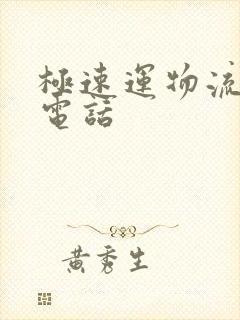 極速運物流
電話
黃秀生